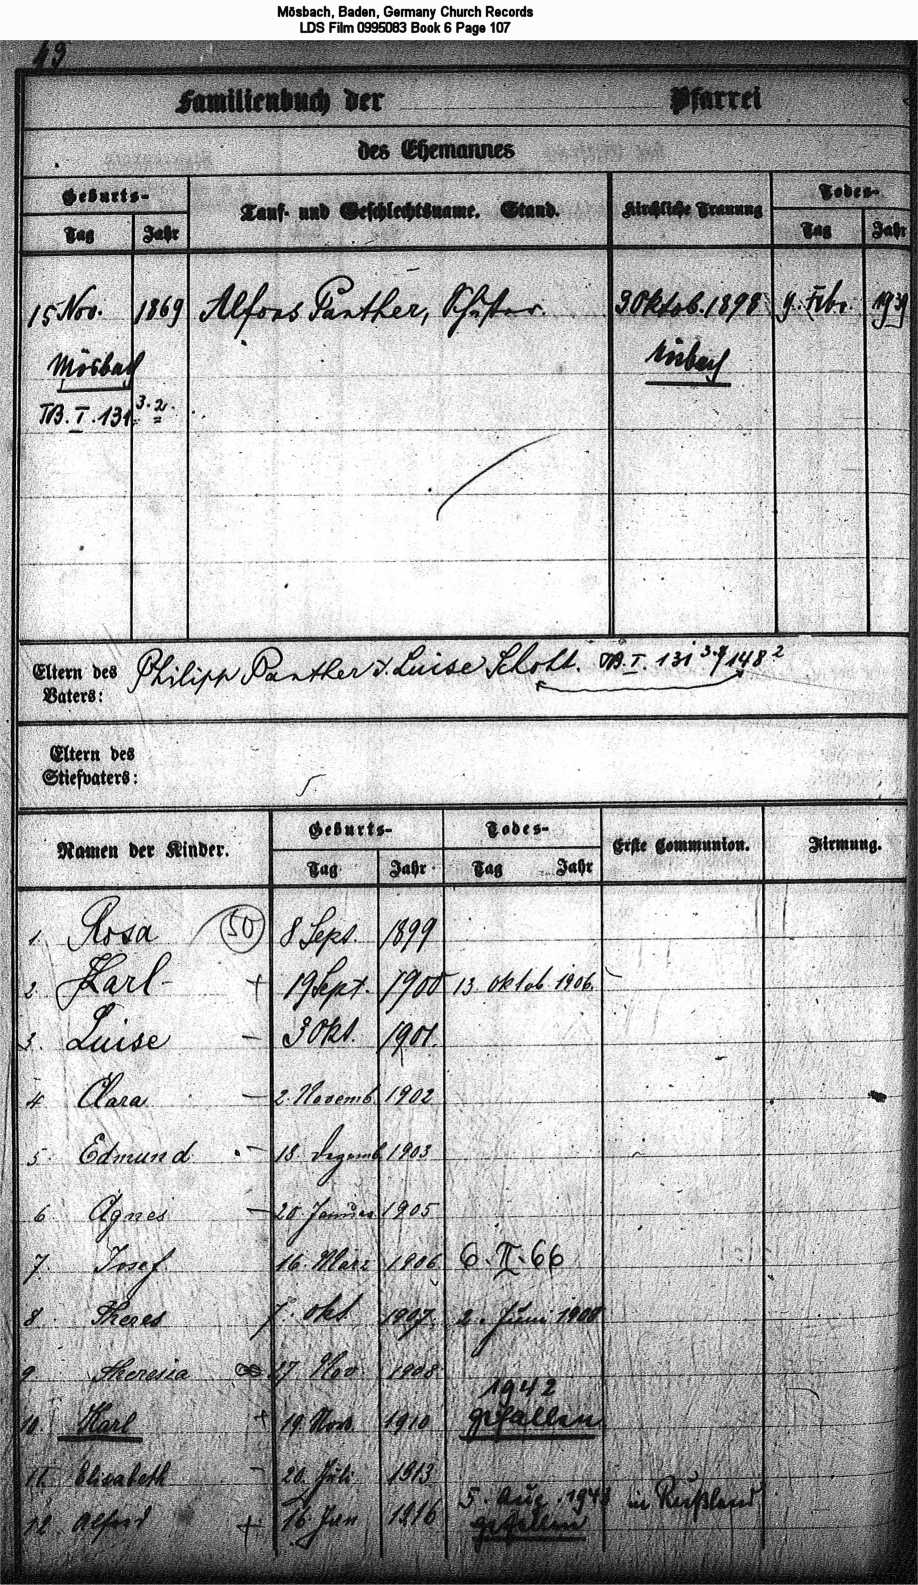 Mösbach, Baden, Germany Church Records
LDS Film 0995083 Book 6 Page 107
Familienbuch der Pfarrei
des Ehemannes
Geburts- Todes-
Tag Jahr Tauf- und Geschlechtsname. Stand. Kirchliche Trauung Tag Jahr
15 Nov. 1869 Alfons Panther, Schuster. 3 Oktob. 1898 9. Febr. 1939
Mösbach Mösbach
TB. I. 131 3.2.
Eltern des Vaters: Philipp Panther u. Luise Schott. TB. I. 131 148 2
Eltern des
Stiefvaters:
Geburts- Todes-
Namen der Kinder. Tag Jahr Tag Jahr Erste Communion. Firmung.
1. Rosa 50 8 Sept. 1899
2. Karl + 19 Sept. 1900 13. Oktob 1906.
3. Luise – 3 Okt. 1901.
4 Clara – 2. Novemb. 1902
5. Edmund – 18. Dezemb. 1903
6. Agnes – 20. Januar 1905
7. Josef 16. März 1906 6.II.66
8. Theres 7. Okt. 1907. 2. Juni 1908
9. Theresia ∞ 27 Nov 1908
1942
10. Karl + 19. Nov. 1910 gefallen
11. Elisabeth – 20. Juli 1913
5. Aug. in Rußland
12. Alfons + 16. Jan 1916 gefallen